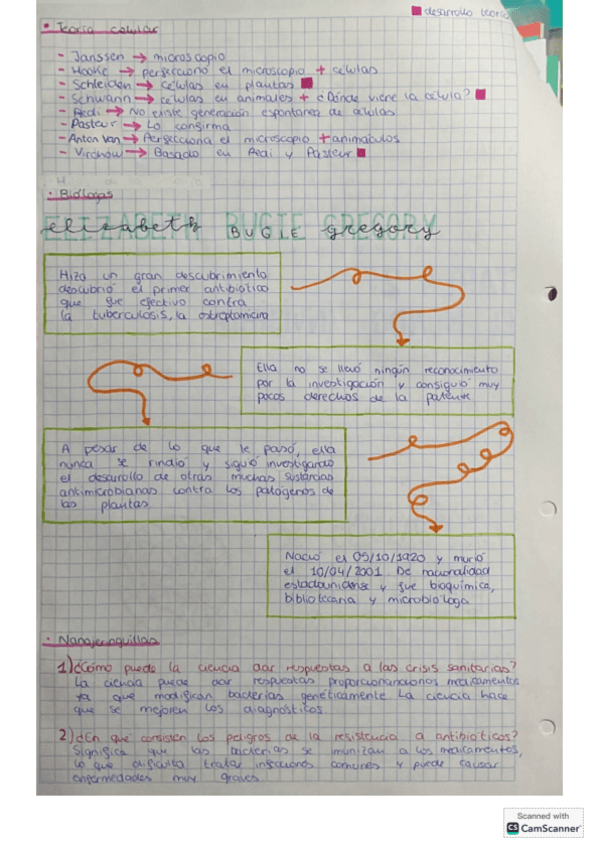 desarrollo teoría
· Teoría celular
- Janssen → microscopio
- Hooke → perfeccionó el microscopio + células
- Schleiden → células en plantas
- Schwann → células en animales + ¿Dónde viene la célula?
- Redi → No existe generación espontánea de células
- Pasteur → Lo confirma
- Anton Van → Perfecciona el microscopio + animáculos
- Virchow → Basado en Redi y Pasteur
· Biólogas
ELIZABETH BUGIE GREGORY
elizabeth BUGIE gregory
Hizo un gran descubrimiento
descubrió el primer antibiótico
que fue efectivo contra
la tuberculosis, la estreptomicina
Ella no se llevó ningún reconocimiento
por la investigación y consiguió muy
pocos derechos de la patente
A pesar de lo que le pasó, ella
nunca se rindió y siguió investigando
el desarrollo de otras muchas sustancias
antimicrobianas contra los patógenos de
las plantas
Nació el 05/10/1920 y murió
el 10/04/2001 De nacionalidad
estadounidense y fue bioquímica,
bibliotecaria y microbióloga
· Nanojeringuillas
1) ¿Cómo puede la ciencia dar respuestas a las crisis sanitarias?
La ciencia puede dar respuestas proporcionándonos medicamentos
ya que modifican bacterias genéticamente La ciencia hace
que se mejoren los diagnósticos.
2) ¿En qué consisten los peligros de la resistencia a antibióticos?
Significa que las bacterias se inmunizan a los medicamentos,
lo que dificulta tratar infecciones comunes y puede causar
enfermedades muy graves
Scanned with
CS CamScanner